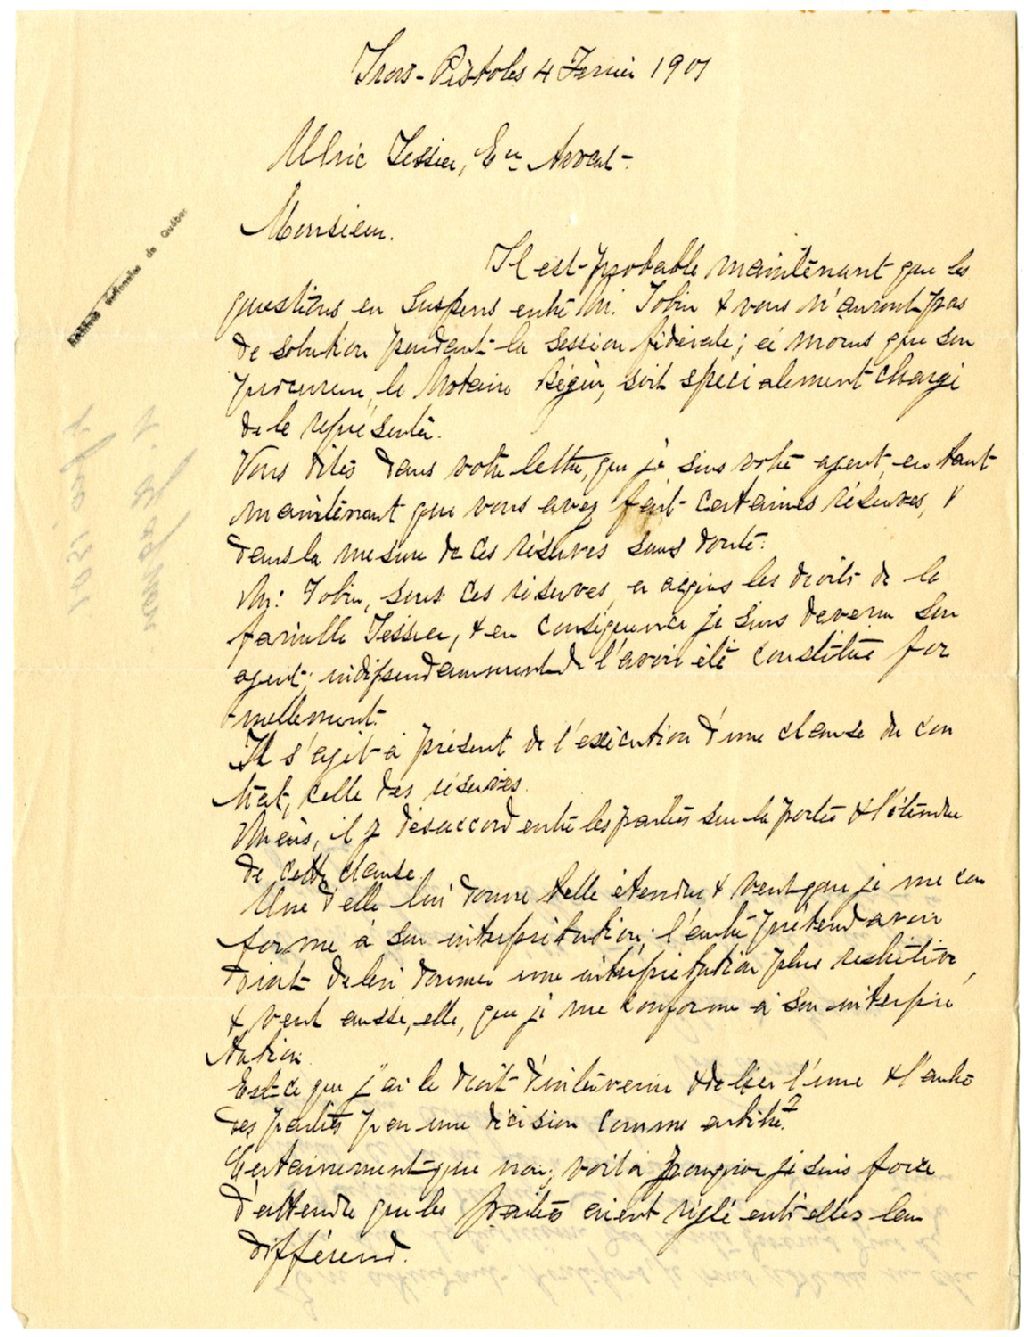 Trois-Pistoles 4 Fevrier 1901
Ulric Tessier, Ecr Avocat-
Monsieur.
Il est probable maintenant que les
questions en suspens entre M. Tobin & vous n'auront pas
de solution pendant la session fédérale; à moins que son
procureur, le Notaire Bégin, soit specialement chargé
de le représenter.
Vous dites dans votre lettre, que je suis votre agent, en tant
maintenant que vous avez fait certaines réserves, &
dans la mesure de ces réserves sans doute.
Mr. Tobin, sous ces réserves, a acquis les droits de la
famille Tessier, & en conséquence je suis devenu son
agent; indépendamment de l'avoir été constitué for
mellement.
Il s'agit à présent de l'exécution d'une clause du con
trat, celle des réserves.
Mais, il y désaccord entre les parties sur la portée & l'étendue
de cette clause.
Une d'elle lui donne telle étendue & veut que je me con
forme à son interprétation; l'autre prétend avoir
droit de lui donner une interprétation plus restrictive,
& veut aussi, elle, que je me conforme à son interpré
tation.
Est-ce que j'ai le droit d'intervenir & de lier l'une & l'autre
des parties par une décision comme arbitre?
Certainement que non; voilà pourquoi je suis forcé
d'attendre que les parties aient réglé entr'elles leur
différend.
Archives nationales du Québec